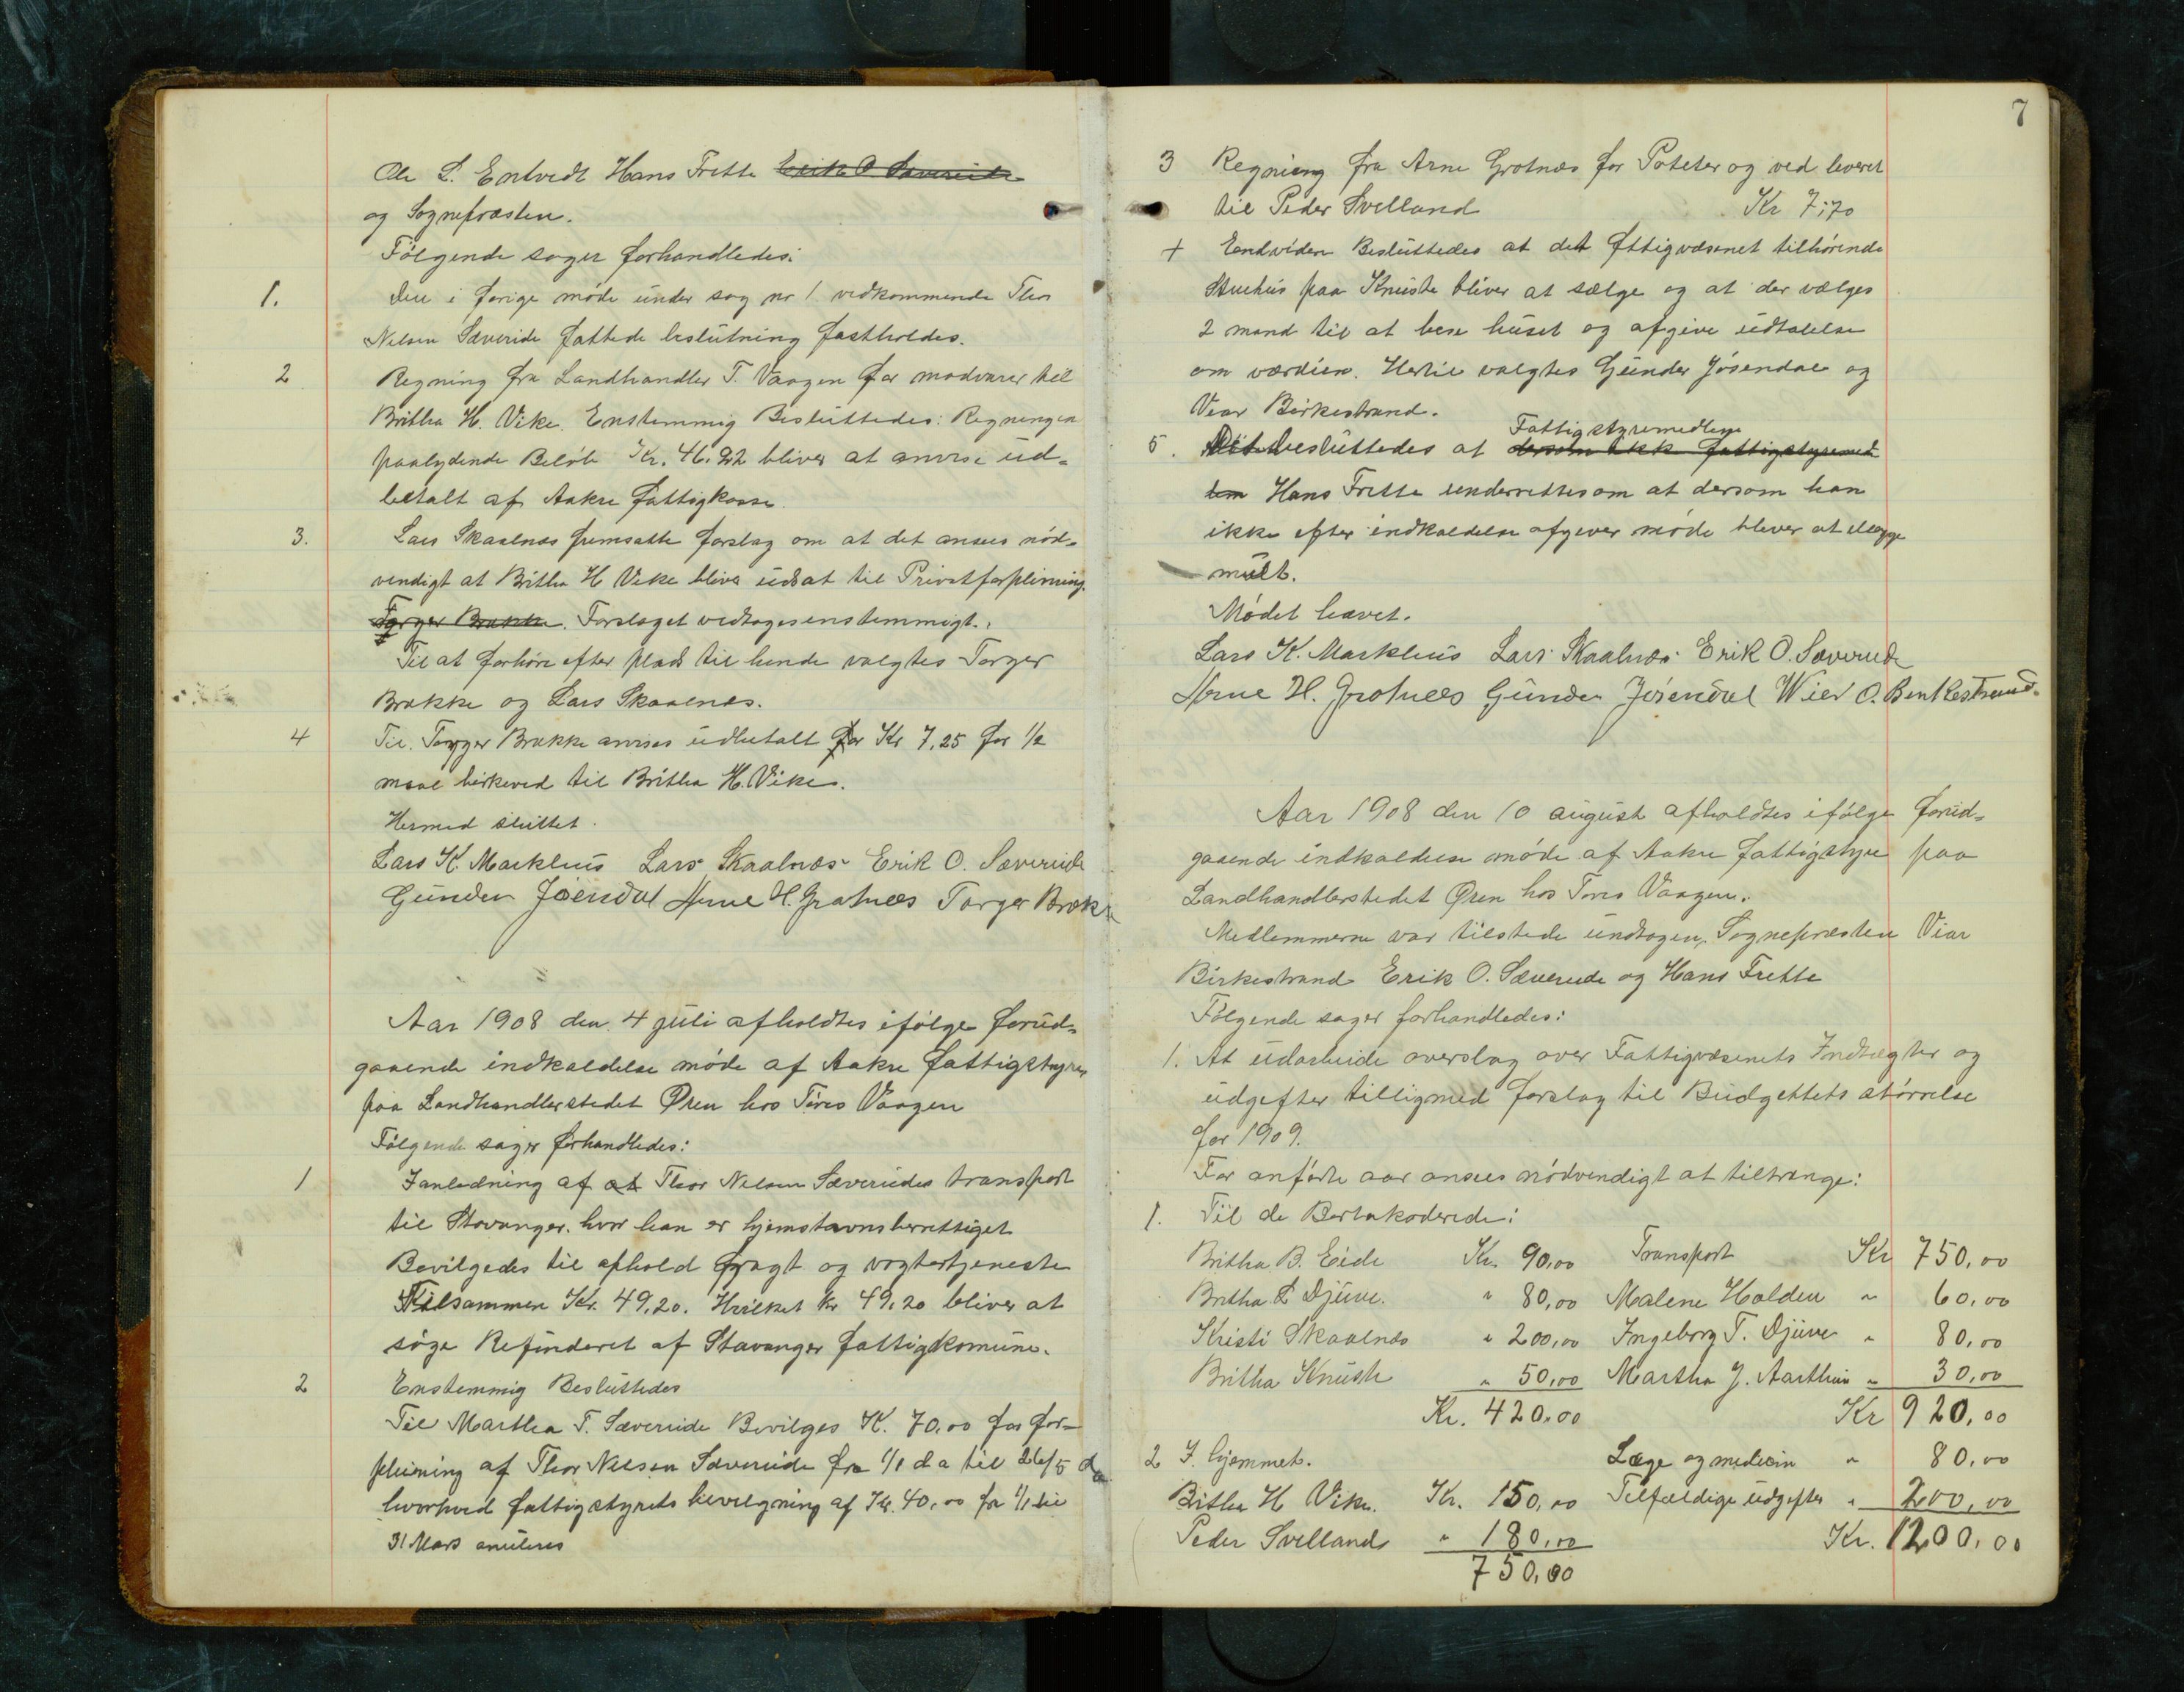 Ole L. Entvedt Hans Frette Erik O Sævereide
og Sognepræsten.
Følgende sager forhandledes:
1. Den i forige møde under sag no 1 vedkommende Thor
Nelsen Sæveride fattede beslutning fastholdes.
2 Regning fra Landhandler T. Vaagen for madvarer til
Britha H. Vike. Enstemmig Besluttedes: Regningen
paalydende Beløb Kr. 46.22 bliver at anvise ud-
betalt af Aakre fattigkasse.
3. Lars Skaalnes fremsatte forslag om at det ansees nød-
vendigt at Britha H Vike bliver udsat til Privatforpleining.
Torger Brække. Forslaget vedtoges enstemmigt.
Til at forhøre efter plads til hende valgtes Torger
Brække og Lars Skaalnes.
4 Til Torger Brække anvises udbetalt for Kr 7,25 for 1/2
maal birkeved til Britha H. Vike.
Hermed sluttet.
Lars K. Markhus Lars Skaalnæs Erik O. Sævereide
Gunder Jøsendal Arne H. Grotnees Torger Brække
Aar 1908 den 4 juli afholdtes ifølge forud-
gaaende indkaldelse møde af Aakre fattigstyre
paa Landhandlerstedet Øren hos Tøres Vaagen
Følgende sager forhandledes:
1 I anledning af at Thor Nelsen Sævereides transport
til Stavanger, hvor han er hjemstavnsberettiget
Bevilgedes til ophold fragt og vogtertjeneste
Tilsammen Kr. 49,20. Hvilket kr 49,20 bliver at
søge Refunderet af Stavanger fattigkomune.
2 Enstemmig Besluttedes
Til Martha T. Sævereide Bevilges K. 70,00 for for-
pleining af Thor Nelsen Sævereide fra 1/1 d a til 26/5 da
hvorhved fattigstyrets bevilgning af Kr. 40,00 fra 1/1 til
31 Mars anuleres
7
3 Regning fra Arne Grotnæs for Poteter og ved leveret
til Peder Svelland Kr 7;70
+ Endvidere Besluttedes at det fttigvæsenet tilhørende
Stuehus paa Knuste bliver at sælge og at der vælges
2 mand til at bese huset og afgive udtalelse
om værdien. Hertil valgtes Gunder Jøsendal og
Viar Birkestrand.
Fattigstyremedlem
5. Det besluttedes at dersom ikke fattigstyremed
lem Hans Frette underrettes om at dersom han
ikke efter indkaldelse afgiver møde bliver at ilægge
mult.
Mødet hævet.
Lars K. Markhus Lars Skaalnæs Erik O. Sævereide
Arne H. Grotnees Gunder Jøsendal Wier O. Benkestrand.
Aar 1908 den 10 august afholdtes ifølge forud-
gaaende indkaldelse møde af Aakre fattigstyre paa
Landhandlerstedet Øren hos Tøres Vaagen.
Medlemmerne var tilstede undtagen, Sognepræsten Viar
Birkestrand Erik O. Sævereide og Hans Frette
Følgende sager forhandledes:
1. At udarbeide overslag over Fattigvæsenets Indtægter og
udgifter tilligemed forslag til Budgettets størrelse
for 1909.
For anførte aar ansees nødvendigt at tiltrænge:
1. Til de Bortakoderede:
Britha B. Eide Kr. 90,00 Transport Kr 750,00
Britha L Djuve. " 80,00 Malene Halden " 60,00
Kristi Skaalnes " 200,00 Ingeborg T. Djuve " 80,00
Britha Knuste " 50,00 Martha J. Aarthun " 30,00
Kr. 420,00 Kr 920,00
2 I. hjemmet. Læge og medicin " 80,00
Britha H Vike. Kr. 150,00 Tilfældige udgifter " 200,00
Peder Svelland " 180,00 Kr. 1200,00
750,00